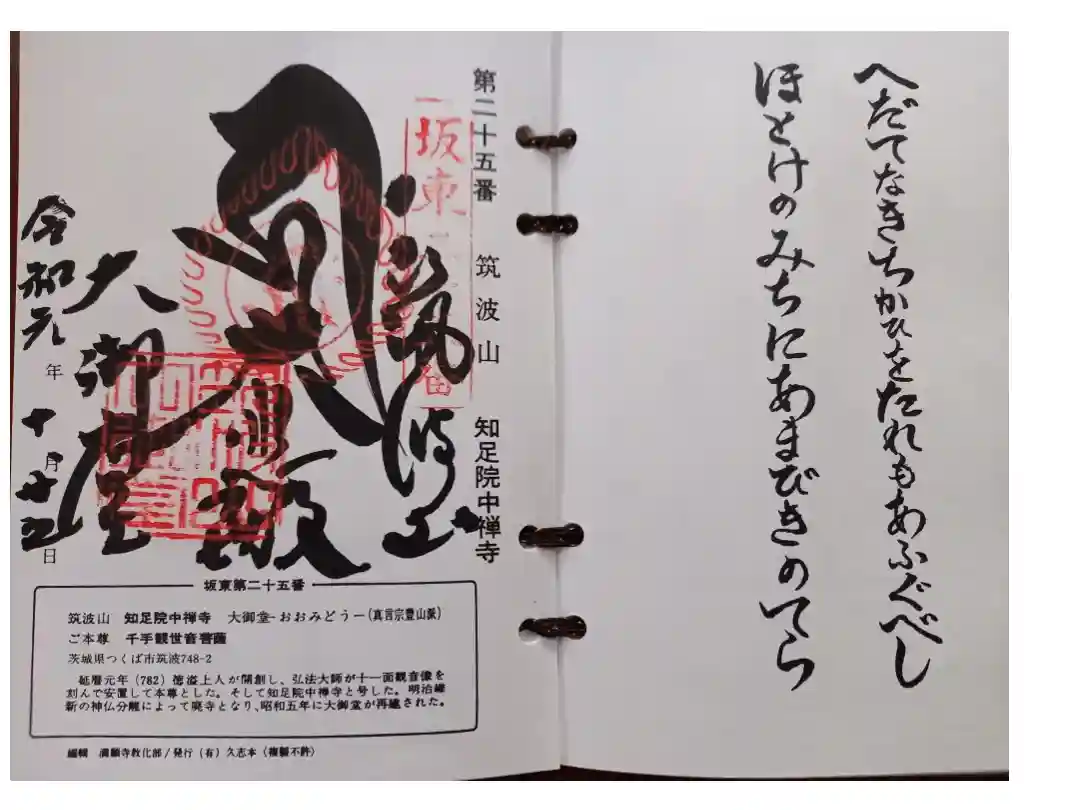 へだてなきちかひをたれもあふぐべし
ほとけのみちにあまびきのてら
第二十五番 筑波山 知足院中禅寺
坂東
筑波山
殿
大御堂
令和元年十月廿五日
坂東第二十五番
筑波山 知足院中禅寺 大御堂-おおみどう-(真言宗豊山派)
ご本尊 千手観世音菩薩
茨城県つくば市筑波748-2
延暦元年(782)徳溢上人が開創し、弘法大師が十一面観音像を
刻んで安置して本尊とした。そして知足院中禅寺と号した。明治維
新の神仏分離によって廃寺となり、昭和五年に大御堂が再建された。
編輯 満願寺教化部/発行(有)久志本(複製不許)